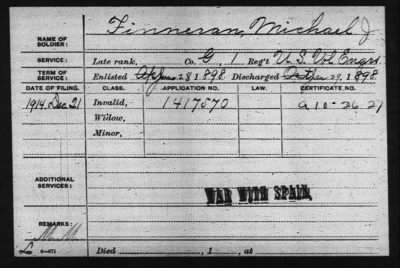 NAME OF SOLDIER: Finneran, Michael J
SERVICE: Late rank, Co. G, 1 Reg't U.S. Vol. Engrs.
TERM OF SERVICE: Enlisted 28 1898 Discharged 1898
DATE OF FILING. CLASS. APPLICATION NO. LAW. CERTIFICATE NO.
1914. Dec 21 Invalid, 1417570
Widow,
Minor,
ADDITIONAL SERVICES:
WAR WITH SPAIN,
REMARKS:
Died , 1 , at